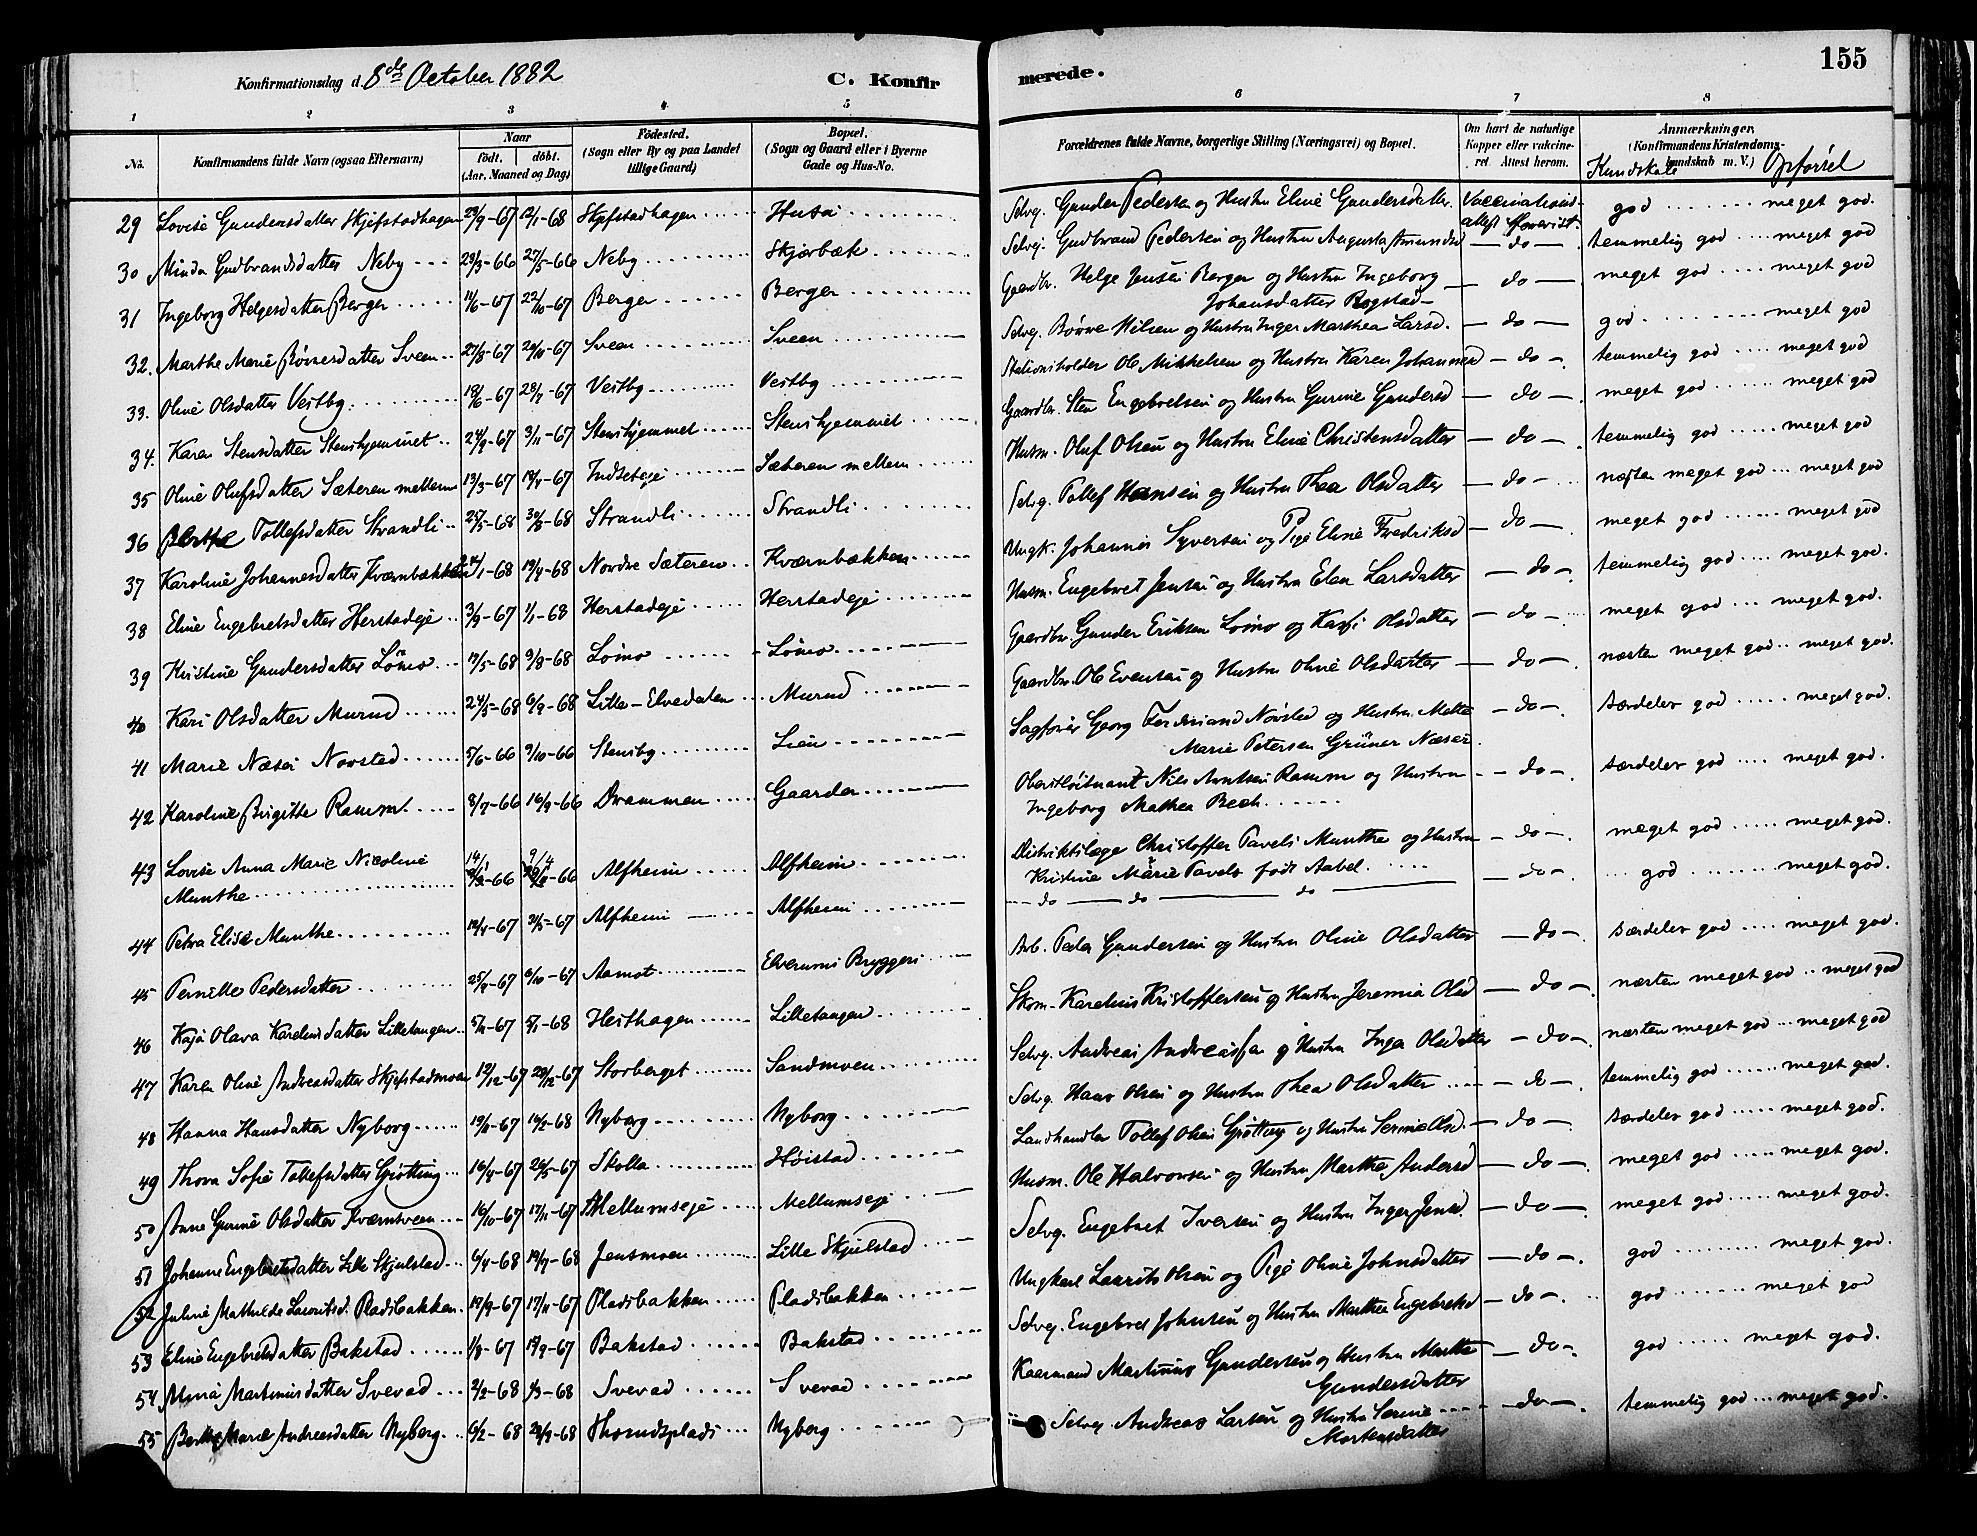 155
Konfirmationsdag d. 8de October 1882
C. Konfirmerede.
1 2 3 4 5 6 7 8
No. Konfirmandens fulde Navn (ogsaa Efternavn) Naar födt. döbt. (Aar, Maaned og Dag) Födested. (Sogn eller By og paa Landet tillige Gaard) Bopæl. (Sogn og Gaard eller i Byerne Gade og Hus-No. Forældrenes fulde Navne, borgerlige Stilling (Næringsvei) og Bopæl. Om havt de naturlige Kopper eller vakcineret. Attest herom. Anmærkninger, (Konfirmandens Kristendomskundskab m. V.) Kundskab Opförsel
29 Lovise Gundersdatter Skjefstadhagen 23/9-67 12/1-68 Skjefstadhagen Husai Selvg. Gunder Pedersen og Hustru Eline Gundersdatter. Vaccinationsattest foreviist. god meget god.
30 Minda Gudbrandsdatter Neby 23/3-66 27/5-66 Neby Skjærbæk Selvej. Gudbrand Pedersen og Hustru Augusta Amundsd do temmelig god meget god
31 Ingeborg Helgesdatter Berger 11/6-67 22/10-67 Berger Berger Gaardbr. Helge Jensen Berger og Hustru Ingeborg Johansdatter Rogstad do meget god meget god
32. Marthe Marie Børresdatter Sveen 27/8-67 20/10-67 Sveen Sveen Selvg. Børre Nilsen og Hustru Inger Marthea Larsd. do god meget god
33. Oline Olsdatter Vestby 18/6-67 28/7-67 Vestby Vestby Stationsholder Ole Mikkelsen og Hustru Karen Johannesd do temmelig god meget god
34. Karen Stensdatter Stenshjemmet 24/9-67 3/11-67 Stenshjemmet Stenshjemmet Gaardbr. Sten Engebretsen og Hustru Gurine Gundersd do meget god meget god
35 Oline Olufsdatter Sæteren mellem 13/3-67 Indseteje Sæteren mellem Husm. Oluf Olsen og Hustru Eline Christensdatter do temmelig god meget god
36 Berthe Tollefsdatter Strandli 25/5-68 30/8-68 Strandli Strandli Selvg. Tollef Hansen og Hustru Thea Olsdatter do næsten meget god meget god
37 Karoline Johannesdatter Kværnbækken 19/4-68 Nordre Sæteren Kværnbækken Ungk. Johannes Syversen og Pige Eline Fredriksd do meget god meget god
38 Eline Engebretsdatter Herstadeje 3/9-67 1/1-68 Herstadeje Herstadeje Husm. Engebret Jensen og Hustru Elen Larsdatter do temmelig god meget god.
39 Kristine Gundersdatter Lömo 17/5-68 9/8-68 Lömo Lömo Gaardbr. Gunder Eriksen Lömo og Kari Olsdatter do meget god meget god.
40 Kari Olsdatter Murud 24/5-68 6/9-68 Lille-Elvedalen Murud Gaardbr. Ole Evensen og Hustru Oline Olsdatter do næsten meget god meget god.
41 Marie Næser Novsted 5/6-66 9/10-66 Stensby Lien Sagfører Georg Ferdinand Novsted og Hustru Mette Marie Petersen Grüner Næser. do særdeles god meget god.
42 Karoline Birgitte Ramm 8/7-66 16/9-66 Drammen Gaarder Oberstlöitnant Nils Arntsen Ramm og Hustru Ingeborg Mathea Bech do særdeles god meget god.
43 Lovise Anna Marie Nicoline Munthe Alfheim Alfheim Distriktslæge Christoffer Pavels Munthe og Hustru Kristine Marie Pavels født Aabel. do meget god meget god.
44 Petra Elise Munthe 12/4-67 31/5-67 Alfheim Alfheim do do do do god meget god.
45 Pernille Pedersdatter 25/4-67 6/10-67 Aamot Elverums Bryggeri Arb. Peder Gundersen og Hustru Oline Olsdatter do særdeles god meget god.
46 Kaja Olava Karelius datter Lilletangen 5/11-67 5/1-68 Hesthagen Lilletangen Skom. Karelius Kristoffersen og Hustru Jeremia Olsd do næsten meget god meget god
47 Karen Oline Andreasdatter Skjefstadmoen 12/12-67 28/12-67 Storberget Sandmoen Selvg. Andreas Andreassen og Hustru Inga Olsdatter do næsten meget god meget god
48 Hanna Hansdatter Nyborg 19/11-67 16/2-68 Nyborg Nyborg Selvg. Hans Olsen og Hustru Thea Olsdatter do temmelig god meget god.
49 Thora Sofie Tollefsdatter Grötting 16/4-67 26/5-67 Skolla Höistad Landhandler Tollef Olsen Grötting og Hustru Serine Olsd. do særdeles god meget god.
50 Anne Gurine Olsdatter Kværnsveen 16/10-67 17/11-67 Mellumseje Mellumseje Husm. Ole Halvorsen og Hustru Marthe Andersd do meget god meget god.
51 Johanne Engebretsdatter Lille Skjulstad 6/4-68 19/7-68 Jensmoen Lille Skjulstad Selvg. Engebret Iversen og Hustru Inger Jensd. do meget god meget god.
52 Juline Mathilde Lauritsd. Pladsbakken 19/9-67 17/11-67 Pladsbakken Pladsbakken Ungkarl Laurits Olsen og Pige Oline Johnsdatter do god meget god.
53 Eline Engebretsdatter Bakstad 1/8-67 Bakstad Bakstad Selvej. Engebret Johnsen og Hustru Marthe Engebretsd do god meget god
54 Mina Martinusdatter Sverad 2/2-68 1/3-68 Sverad Sverad Kaarmand Martinus Gundersen og Hustru Marthe Gundersdatter do god meget god.
55 Berthe Marie Andreasdatter Nyborg 6/2-68 Thomdsplads Nyborg Selvej Andreas Larsen og Hustru Serine Mortensdatter do temmelig god meget god.